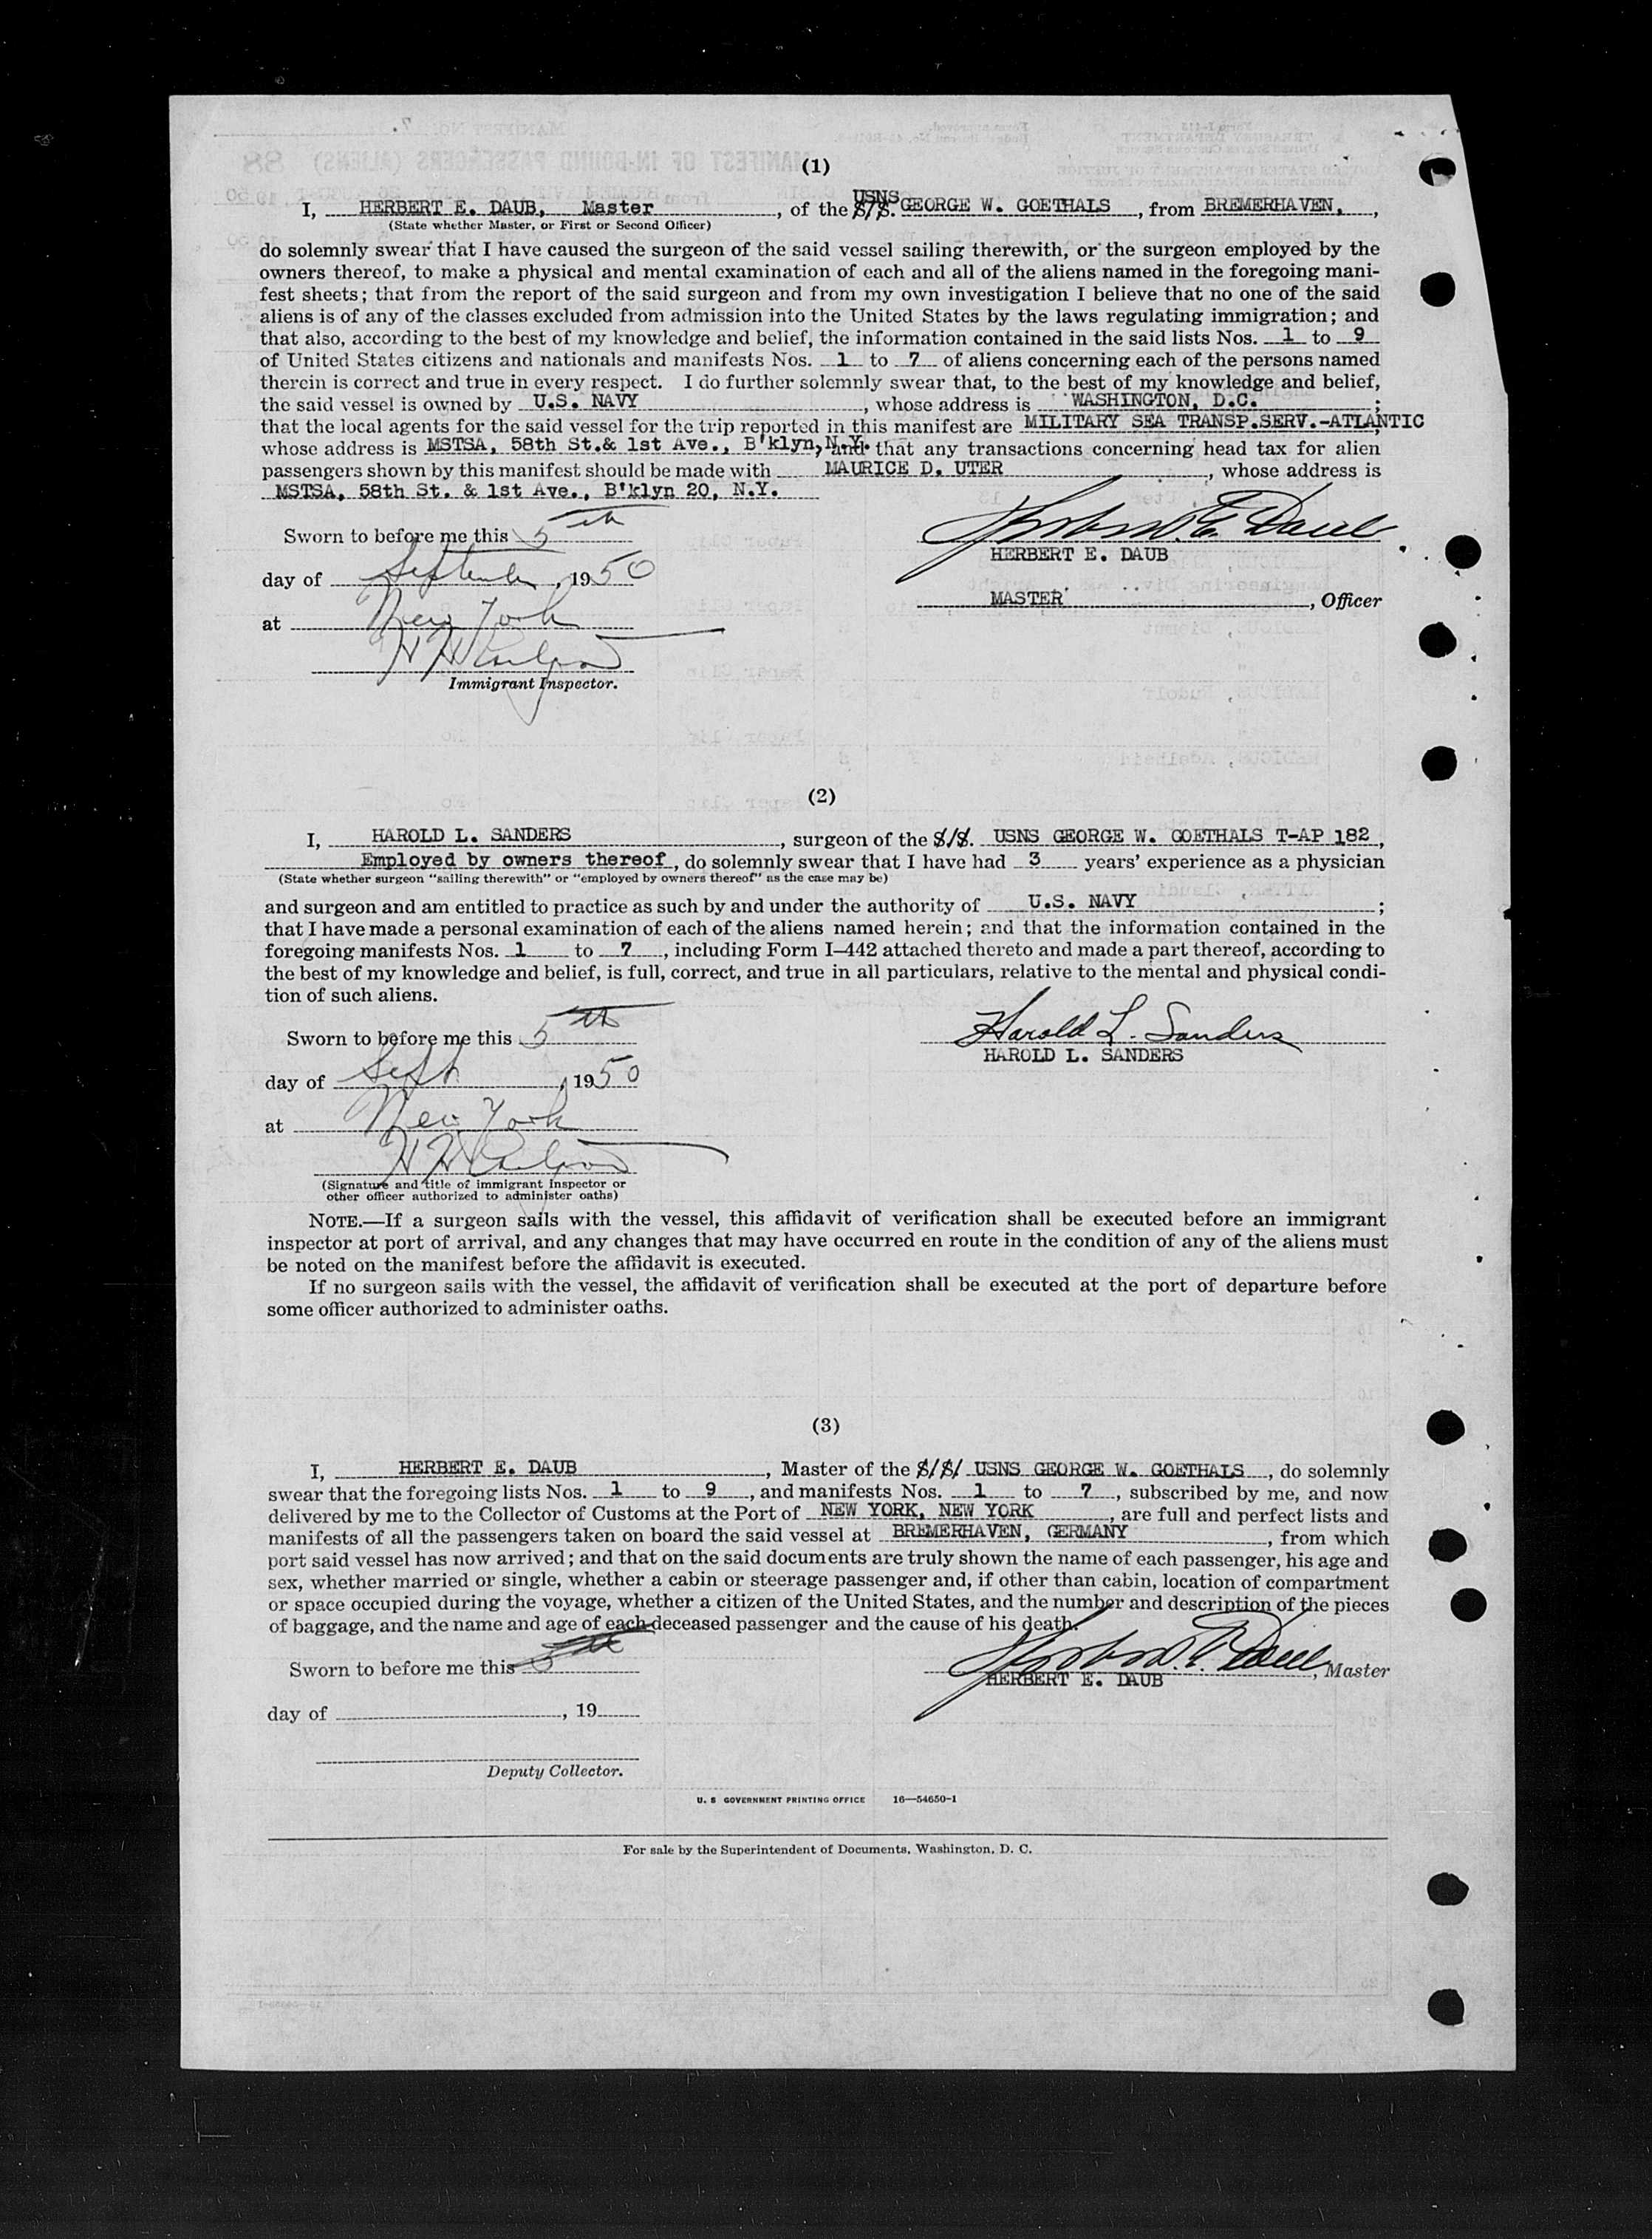 (1)
I, HERBERT E. DAUB, Master, of the S/S. USNS GEORGE W. GOETHALS, from BREMERHAVEN,,
(State whether Master, or First or Second Officer)
do solemnly swear that I have caused the surgeon of the said vessel sailing therewith, or the surgeon employed by the
owners thereof, to make a physical and mental examination of each and all of the aliens named in the foregoing mani-
fest sheets; that from the report of the said surgeon and from my own investigation I believe that no one of the said
aliens is of any of the classes excluded from admission into the United States by the laws regulating immigration; and
that also, according to the best of my knowledge and belief, the information contained in the said lists Nos. 1 to 9
of United States citizens and nationals and manifests Nos. 1 to 7 of aliens concerning each of the persons named
therein is correct and true in every respect. I do further solemnly swear that, to the best of my knowledge and belief,
the said vessel is owned by U.S. NAVY, whose address is WASHINGTON, D.C.;
that the local agents for the said vessel for the trip reported in this manifest are MILITARY SEA TRANSP.SERV.-ATLANTIC
whose address is MSTSA, 58th St.& 1st Ave., B'klyn,N.Y. and that any transactions concerning head tax for alien
passengers shown by this manifest should be made with MAURICE D. UTER, whose address is
MSTSA, 58th St. & 1st Ave., B'klyn 20, N.Y.
Sworn to before me this 5th
HERBERT E. DAUB
day of September, 1950
MASTER, Officer
at New York
Immigrant Inspector.
(2)
I, HAROLD L. SANDERS, surgeon of the S/S. USNS GEORGE W. GOETHALS T-AP 182,
Employed by owners thereof, do solemnly swear that I have had 3 years' experience as a physician
(State whether surgeon "sailing therewith" or "employed by owners thereof" as the case may be)
and surgeon and am entitled to practice as such by and under the authority of U.S. NAVY;
that I have made a personal examination of each of the aliens named herein; and that the information contained in the
foregoing manifests Nos. 1 to 7, including Form I-442 attached thereto and made a part thereof, according to
the best of my knowledge and belief, is full, correct, and true in all particulars, relative to the mental and physical condi-
tion of such aliens.
Sworn to before me this 5th
Harold L. Sanders
HAROLD L. SANDERS
day of Sept, 1950
at New York
(Signature and title of immigrant inspector or
other officer authorized to administer oaths)
NOTE.—If a surgeon sails with the vessel, this affidavit of verification shall be executed before an immigrant
inspector at port of arrival, and any changes that may have occurred en route in the condition of any of the aliens must
be noted on the manifest before the affidavit is executed.
If no surgeon sails with the vessel, the affidavit of verification shall be executed at the port of departure before
some officer authorized to administer oaths.
(3)
I, HERBERT E. DAUB, Master of the S/S/ USNS GEORGE W. GOETHALS, do solemnly
swear that the foregoing lists Nos. 1 to 9, and manifests Nos. 1 to 7, subscribed by me, and now
delivered by me to the Collector of Customs at the Port of NEW YORK, NEW YORK, are full and perfect lists and
manifests of all the passengers taken on board the said vessel at BREMERHAVEN, GERMANY, from which
port said vessel has now arrived; and that on the said documents are truly shown the name of each passenger, his age and
sex, whether married or single, whether a cabin or steerage passenger and, if other than cabin, location of compartment
or space occupied during the voyage, whether a citizen of the United States, and the number and description of the pieces
of baggage, and the name and age of each deceased passenger and the cause of his death.
Sworn to before me this 5th
Herbert E. Daub, Master
HERBERT E. DAUB
day of , 19
Deputy Collector.
U. S GOVERNMENT PRINTING OFFICE 16—54650-1
For sale by the Superintendent of Documents, Washington, D. C.